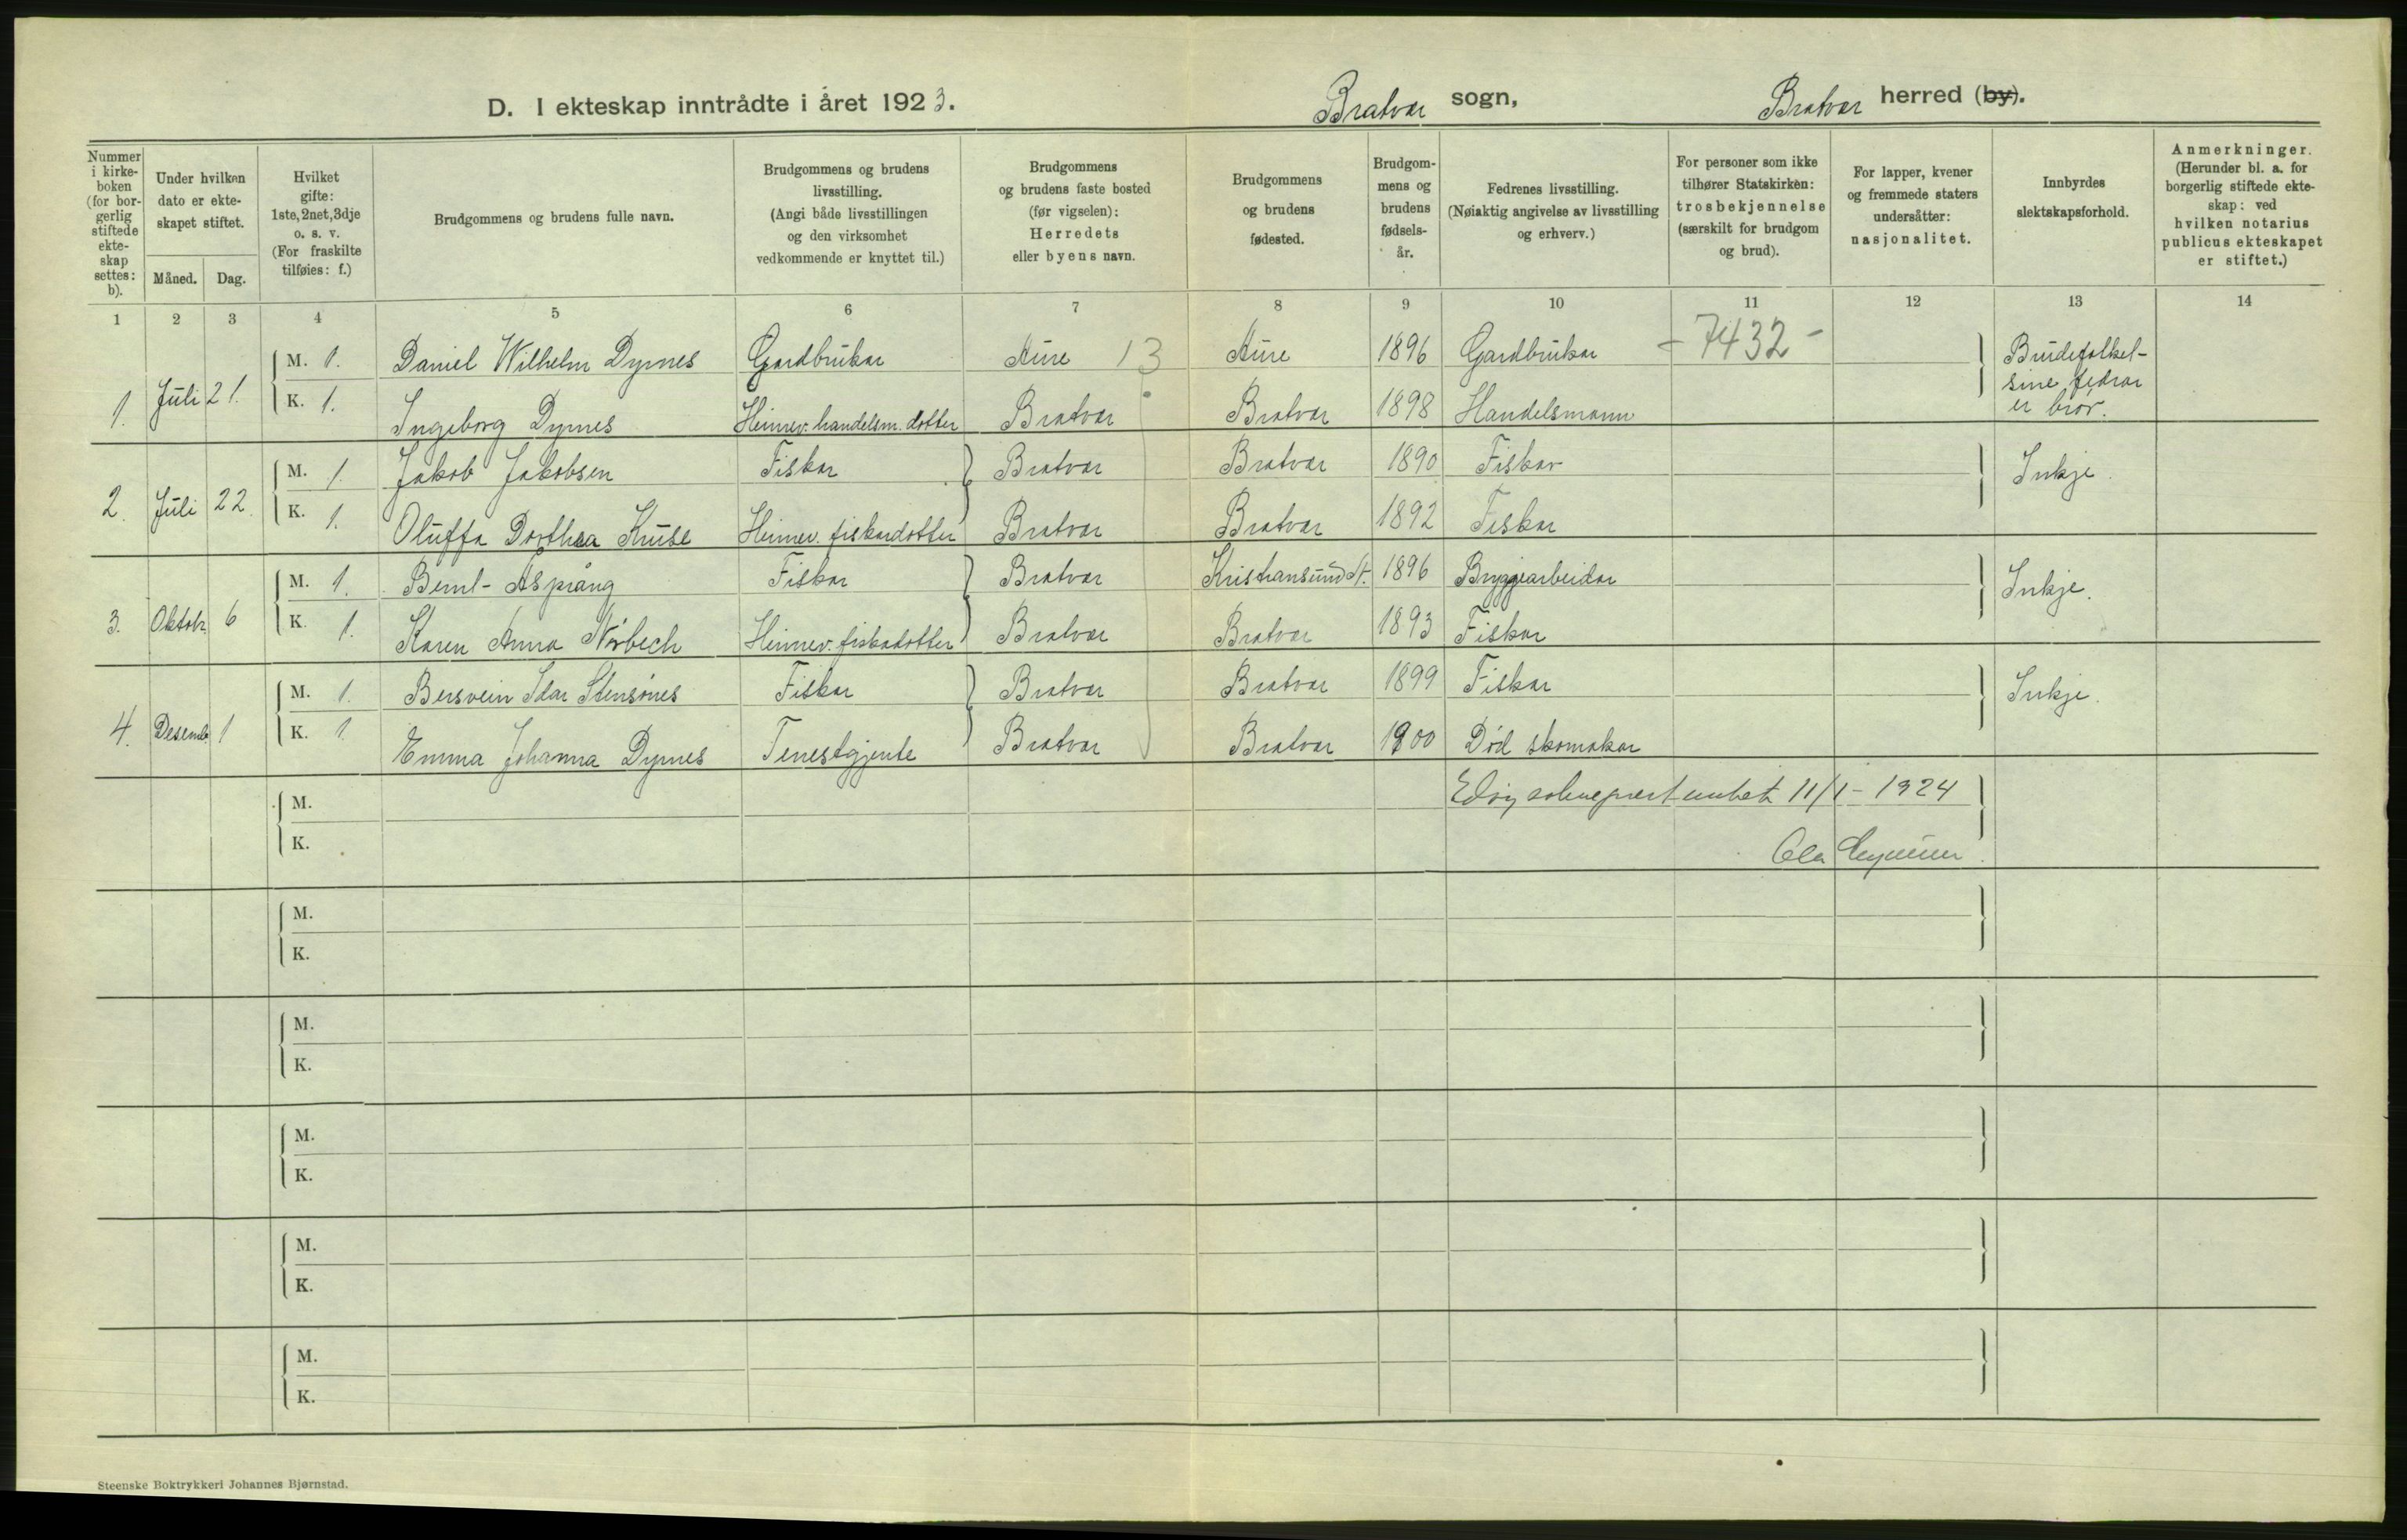 D. I ekteskap inntrådte i året 1923. Bratvær sogn, Bratvær herred (by).
Nummer i kirkeboken (for borgerlig stiftede ekteskap settes: b).
Under hvilken dato er ekteskapet stiftet.
Måned. Dag.
Hvilket gifte: 1ste, 2net, 3dje o. s. v. (For fraskilte tilføies: f.)
Brudgommens og brudens fulle navn.
Brudgommens og brudens livsstilling. (Angi både livsstillingen og den virksomhet vedkommende er knyttet til.)
Brudgommens og brudens faste bosted (før vigselen): Herredets eller byens navn.
Brudgommens og brudens fødested.
Brudgommens og brudens fødselsår.
Fedrenes livsstilling. (Nøiaktig angivelse av livsstilling og erhverv.)
For personer som ikke tilhører Statskirken: trosbekjennelse (særskilt for brudgom og brud).
For lapper, kvener og fremmede staters undersåtter: nasjonalitet.
Innbyrdes slektskapsforhold.
Anmerkninger. (Herunder bl. a. for borgerlig stiftede ekteskap: ved hvilken notarius publicus ekteskapet er stiftet.)
1 2 3 4 5 6 7 8 9 10 11 12 13 14
1. Juli 21. M. 1. Daniel Wilhelm Dyrnes Gardbrukar Aure 13 Aure 1896 Gardbrukar - 7432 - Brudefolket-
sine fedrar
er brør.
K. 1. Ingeborg Dyrnes Heimev. handelsm. dotter Bratvær Bratvær 1898 Handelsmann
2. Juli 22. M. 1. Jakob Jakobsen Fiskar Bratvær Bratvær 1890 Fiskar Inkje.
K. 1. Oluffa Dorthea Kruse Heimev. fiskardotter Bratvær Bratvær 1892 Fiskar
3. Oktobr. 6 M. 1. Bernt Asprång Fiskar Bratvær Kristiansund N. 1896 Bryggearbeidar Inkje.
K. 1. Karen Anna Nørbech Heimev. fiskardotter Bratvær Bratvær 1893 Fiskar
4. Desemb. 1 M. 1. Bersvein Idar Stensønes Fiskar Bratvær Bratvær 1899 Fiskar Inkje.
K. 1. Emma Johanna Dyrnes Tenestgjente Bratvær Bratvær 1900 Død skomakar
M. Edøy soknepræstembet 11/1 - 1924
K. Ola
M.
K.
M.
K.
M.
K.
M.
K.
M.
K.
Steenske Boktrykkeri Johannes Bjørnstad.